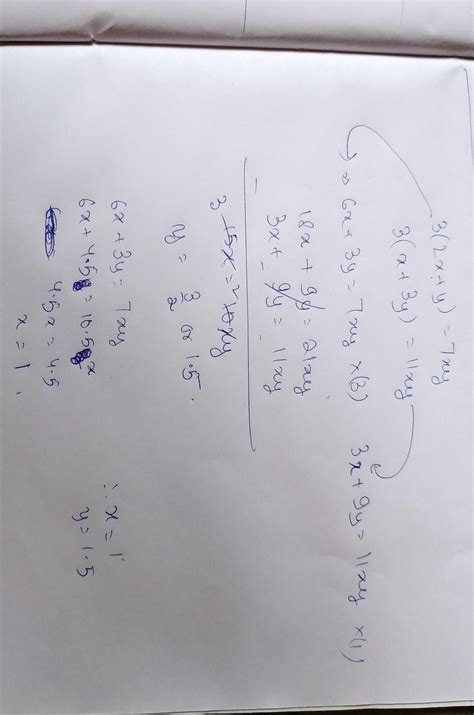 3(2x+y) = 7xy
3(x+3y) = 11xy
⇒ 6x+3y = 7xy ×(3)    3x+9y = 11xy ×(1)
18x + 9y = 21xy
3x + 9y = 11xy
- - -
3 15x = 2 10xy
y = 3/2 or 1.5
6x + 3y = 7xy
6x + 4.5 = 10.5x
4.5x = 4.5
x = 1
∴ x = 1
y = 1.5